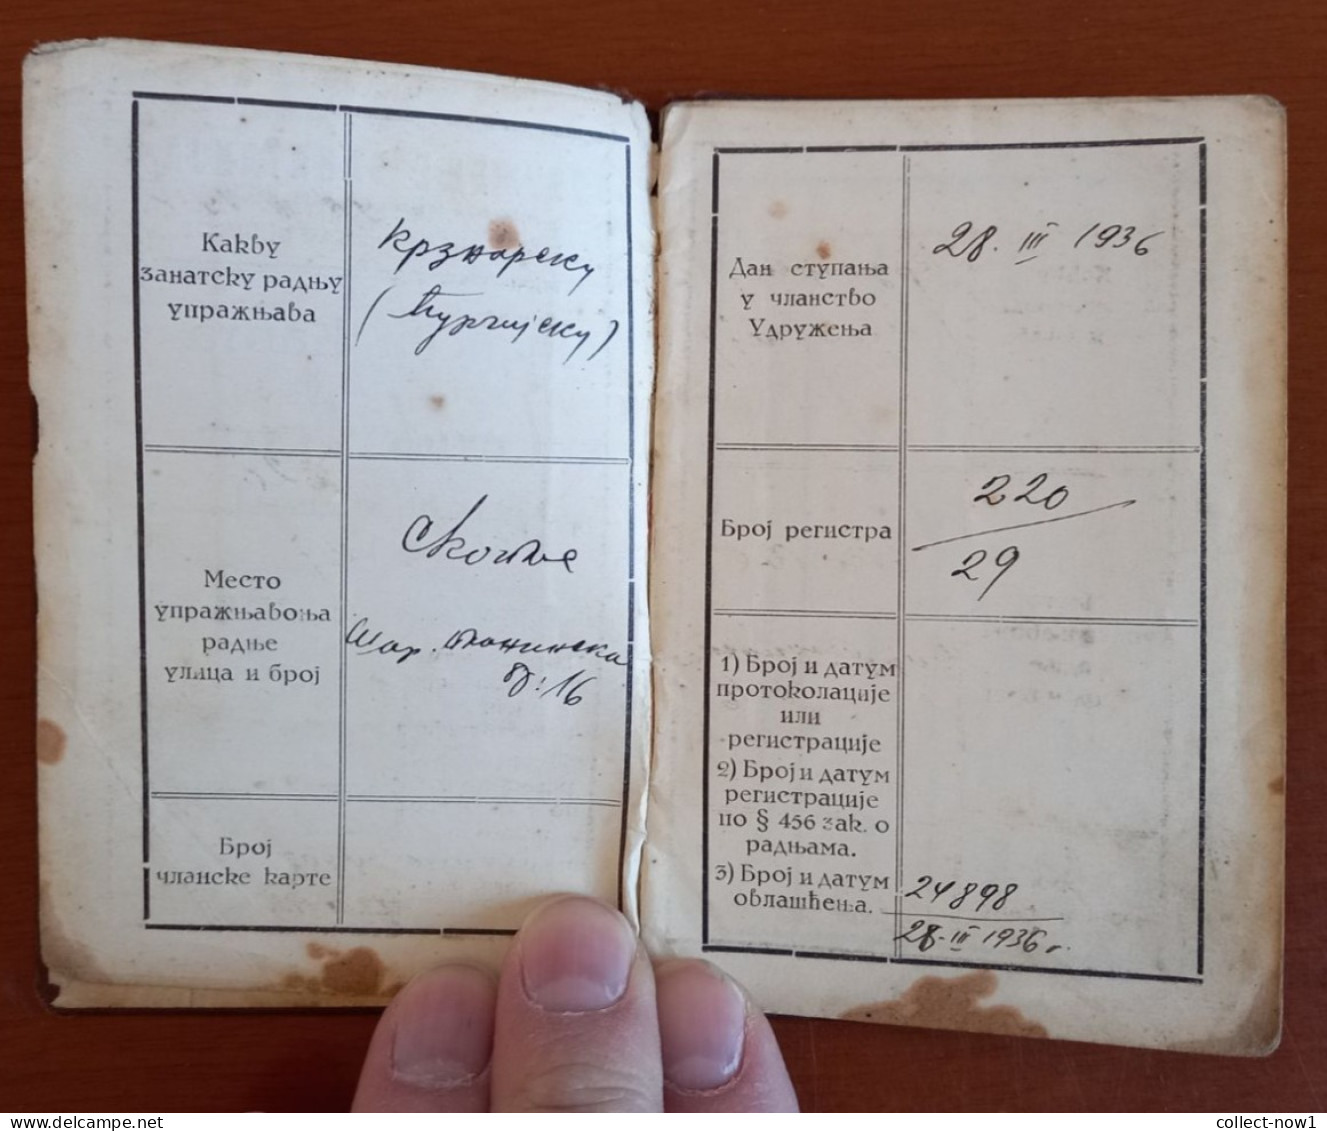 Какву
занатску радњу
упражњава
крзнарску
(ћурчијску)
Место
упражњавоња
радње
улица и број
Скопље
планинска
б: 16
Број
чланске карте
Дан ступања
у чланство
Удружења
28. III 1936
Број регистра
220
29
1) Број и датум
протоколације
или
регистрације
2) Број и датум
регистрације
по § 456 зак. о
радњама.
3) Број и датум
овлашћења.
24898
28. III 1936 г.
collect-now1